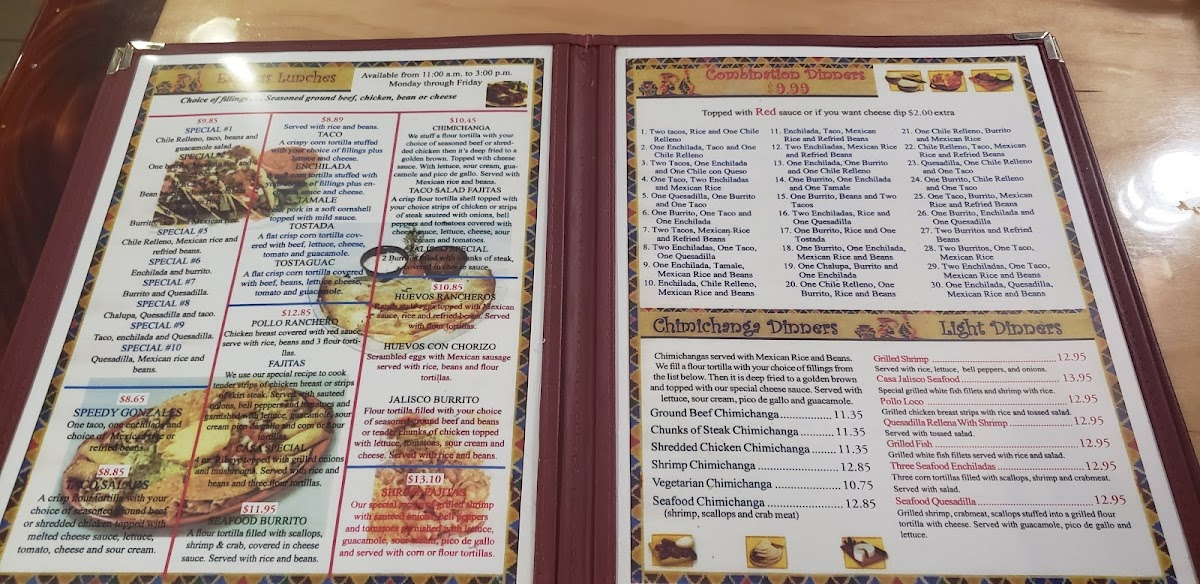 Express Lunches
Available from 11:00 a.m. to 3:00 p.m.
Monday through Friday
Choice of fillings . . . Seasoned ground beef, chicken, bean or cheese
$9.85
SPECIAL #1
Chile Relleno, taco, beans and
guacamole salad.
SPECIAL
One
Bean
Burrito, taco and Mexican rice.
SPECIAL #5
Chile Relleno, Mexican rice and
refried beans.
SPECIAL #6
Enchilada and burrito.
SPECIAL #7
Burrito and Quesadilla.
SPECIAL #8
Chalupa, Quesadilla and taco.
SPECIAL #9
Taco, enchilada and Quesadilla.
SPECIAL #10
Quesadilla, Mexican rice and
beans.
$8.65
SPEEDY GONZALES
One taco, one enchilada and
choice of Mexican rice or
refried beans.
$8.85
TACO SALADS
A crisp flour tortilla with your
choice of seasoned ground beef
or shredded chicken topped with
melted cheese sauce, lettuce,
tomato, cheese and sour cream.
$8.89
Served with rice and beans.
TACO
A crispy corn tortilla stuffed
with your choice of fillings plus
lettuce and cheese.
ENCHILADA
corn tortilla stuffed with
your choice of fillings plus en-
sauce and cheese.
TAMALE
pork in a soft cornshell
topped with mild sauce.
TOSTADA
A flat crisp corn tortilla cov-
ered with beef, lettuce, cheese,
tomato and guacamole.
TOSTAGUAC
A flat crisp corn tortilla covered
with beef, beans, lettuce, cheese,
tomato and guacamole.
$12.85
POLLO RANCHERO
Chicken breast covered with red sauce,
serve with rice, beans and 3 flour torti-
llas.
FAJITAS
We use our special recipe to cook
tender strips of chicken breast or strips
of skirt steak. Served with sauteed
onions, bell peppers and tomatoes and
garnished with lettuce, guacamole, sour
cream pico de gallo and corn or flour
tortillas.
CASA SPECIAL
4 oz. Ribeye topped with grilled onions
and mushrooms. Served with rice and
beans and three flour tortillas.
$11.95
SEAFOOD BURRITO
A flour tortilla filled with scallops,
shrimp & crab, covered in cheese
sauce. Served with rice and beans.
$10.45
CHIMICHANGA
We stuff a flour tortilla with your
choice of seasoned beef or shred-
ded chicken then it's deep fried to a
golden brown. Topped with cheese
sauce. With lettuce, sour cream, gua-
camole and pico de gallo. Served with
Mexican rice and beans.
TACO SALAD FAJITAS
A crisp flour tortilla shell topped with
your choice strips of chicken or strips
of steak sauteed with onions, bell
peppers and tomatoes covered with
cheese sauce, lettuce, cheese, sour
cream and tomatoes.
JALISCO SPECIAL
2 Burritos filled with chunks of steak,
covered in cheese sauce.
$10.85
HUEVOS RANCHEROS
Ranch style eggs topped with Mexican
sauce, rice and refried beans. Served
with flour tortillas.
HUEVOS CON CHORIZO
Scrambled eggs with Mexican sausage
served with rice, beans and flour
tortillas.
JALISCO BURRITO
Flour tortilla filled with your choice
of seasoned ground beef and beans
or tender chunks of chicken topped
with lettuce, tomatoes, sour cream and
cheese. Served with rice and beans.
$13.10
SHRIMP FAJITAS
Our special recipe of grilled shrimp
with sauteed onions, bell peppers
and tomatoes garnished with lettuce,
guacamole, sour cream, pico de gallo
and served with corn or flour tortillas.
Combination Dinners
$9.99
Topped with Red sauce or if you want cheese dip $2.00 extra
1. Two tacos, Rice and One Chile
Relleno
2. One Enchilada, Taco and One
Chile Relleno
3. Two Tacos, One Enchilada
and One Chile con Queso
4. One Taco, Two Enchiladas
and Mexican Rice
5. One Quesadilla, One Burrito
and One Taco
6. One Burrito, One Taco and
One Enchilada
7. Two Tacos, Mexican Rice
and Refried Beans
8. Two Enchiladas, One Taco,
One Quesadilla
9. One Enchilada, Tamale,
Mexican Rice and Beans
10. Enchilada, Chile Relleno,
Mexican Rice and Beans
11. Enchilada, Taco, Mexican
Rice and Refried Beans
12. Two Enchiladas, Mexican Rice
and Refried Beans
13. One Enchilada, One Burrito
and One Chile Relleno
14. One Burrito, One Enchilada
and One Tamale
15. One Burrito, Beans and Two
Tacos
16. Two Enchiladas, Rice and
One Quesadilla
17. One Burrito, Rice and One
Tostada
18. One Burrito, One Enchilada,
Mexican Rice and Beans
19. One Chalupa, Burrito and
One Enchilada
20. One Chile Relleno, One
Burrito, Rice and Beans
21. One Chile Relleno, Burrito
and Mexican Rice
22. Chile Relleno, Taco, Mexican
Rice and Refried Beans
23. Quesadilla, One Chile Relleno
and One Taco
24. One Burrito, Chile Relleno
and One Taco
25. One Taco, Burrito, Mexican
Rice and Refried Beans
26. One Burrito, Enchilada and
One Quesadilla
27. Two Burritos and Refried
Beans
28. Two Burritos, One Taco,
Mexican Rice
29. Two Enchiladas, One Taco,
Mexican Rice and Beans
30. One Enchilada, Quesadilla,
Mexican Rice and Beans
Chimichanga Dinners
Chimichangas served with Mexican Rice and Beans.
We fill a flour tortilla with your choice of fillings from
the list below. Then it is deep fried to a golden brown
and topped with our special cheese sauce. Served with
lettuce, sour cream, pico de gallo and guacamole.
Ground Beef Chimichanga 11.35
Chunks of Steak Chimichanga 11.35
Shredded Chicken Chimichanga 11.35
Shrimp Chimichanga 12.85
Vegetarian Chimichanga 10.75
Seafood Chimichanga 12.85
(shrimp, scallops and crab meat)
Light Dinners
Grilled Shrimp 12.95
Served with rice, lettuce, bell peppers, and onions.
Casa Jalisco Seafood 13.95
Special grilled white fish fillets and shrimp with rice.
Pollo Loco 12.95
Grilled chicken breast strips with rice and tossed salad.
Quesadilla Rellena With Shrimp 12.95
Served with tossed salad.
Grilled Fish 12.95
Grilled white fish fillets served with rice and salad.
Three Seafood Enchiladas 12.95
Three corn tortillas filled with scallops, shrimp and crabmeat.
Served with salad.
Seafood Quesadilla 12.95
Grilled shrimp, crabmeat, scallops stuffed into a grilled flour
tortilla with cheese. Served with guacamole, pico de gallo and
lettuce.